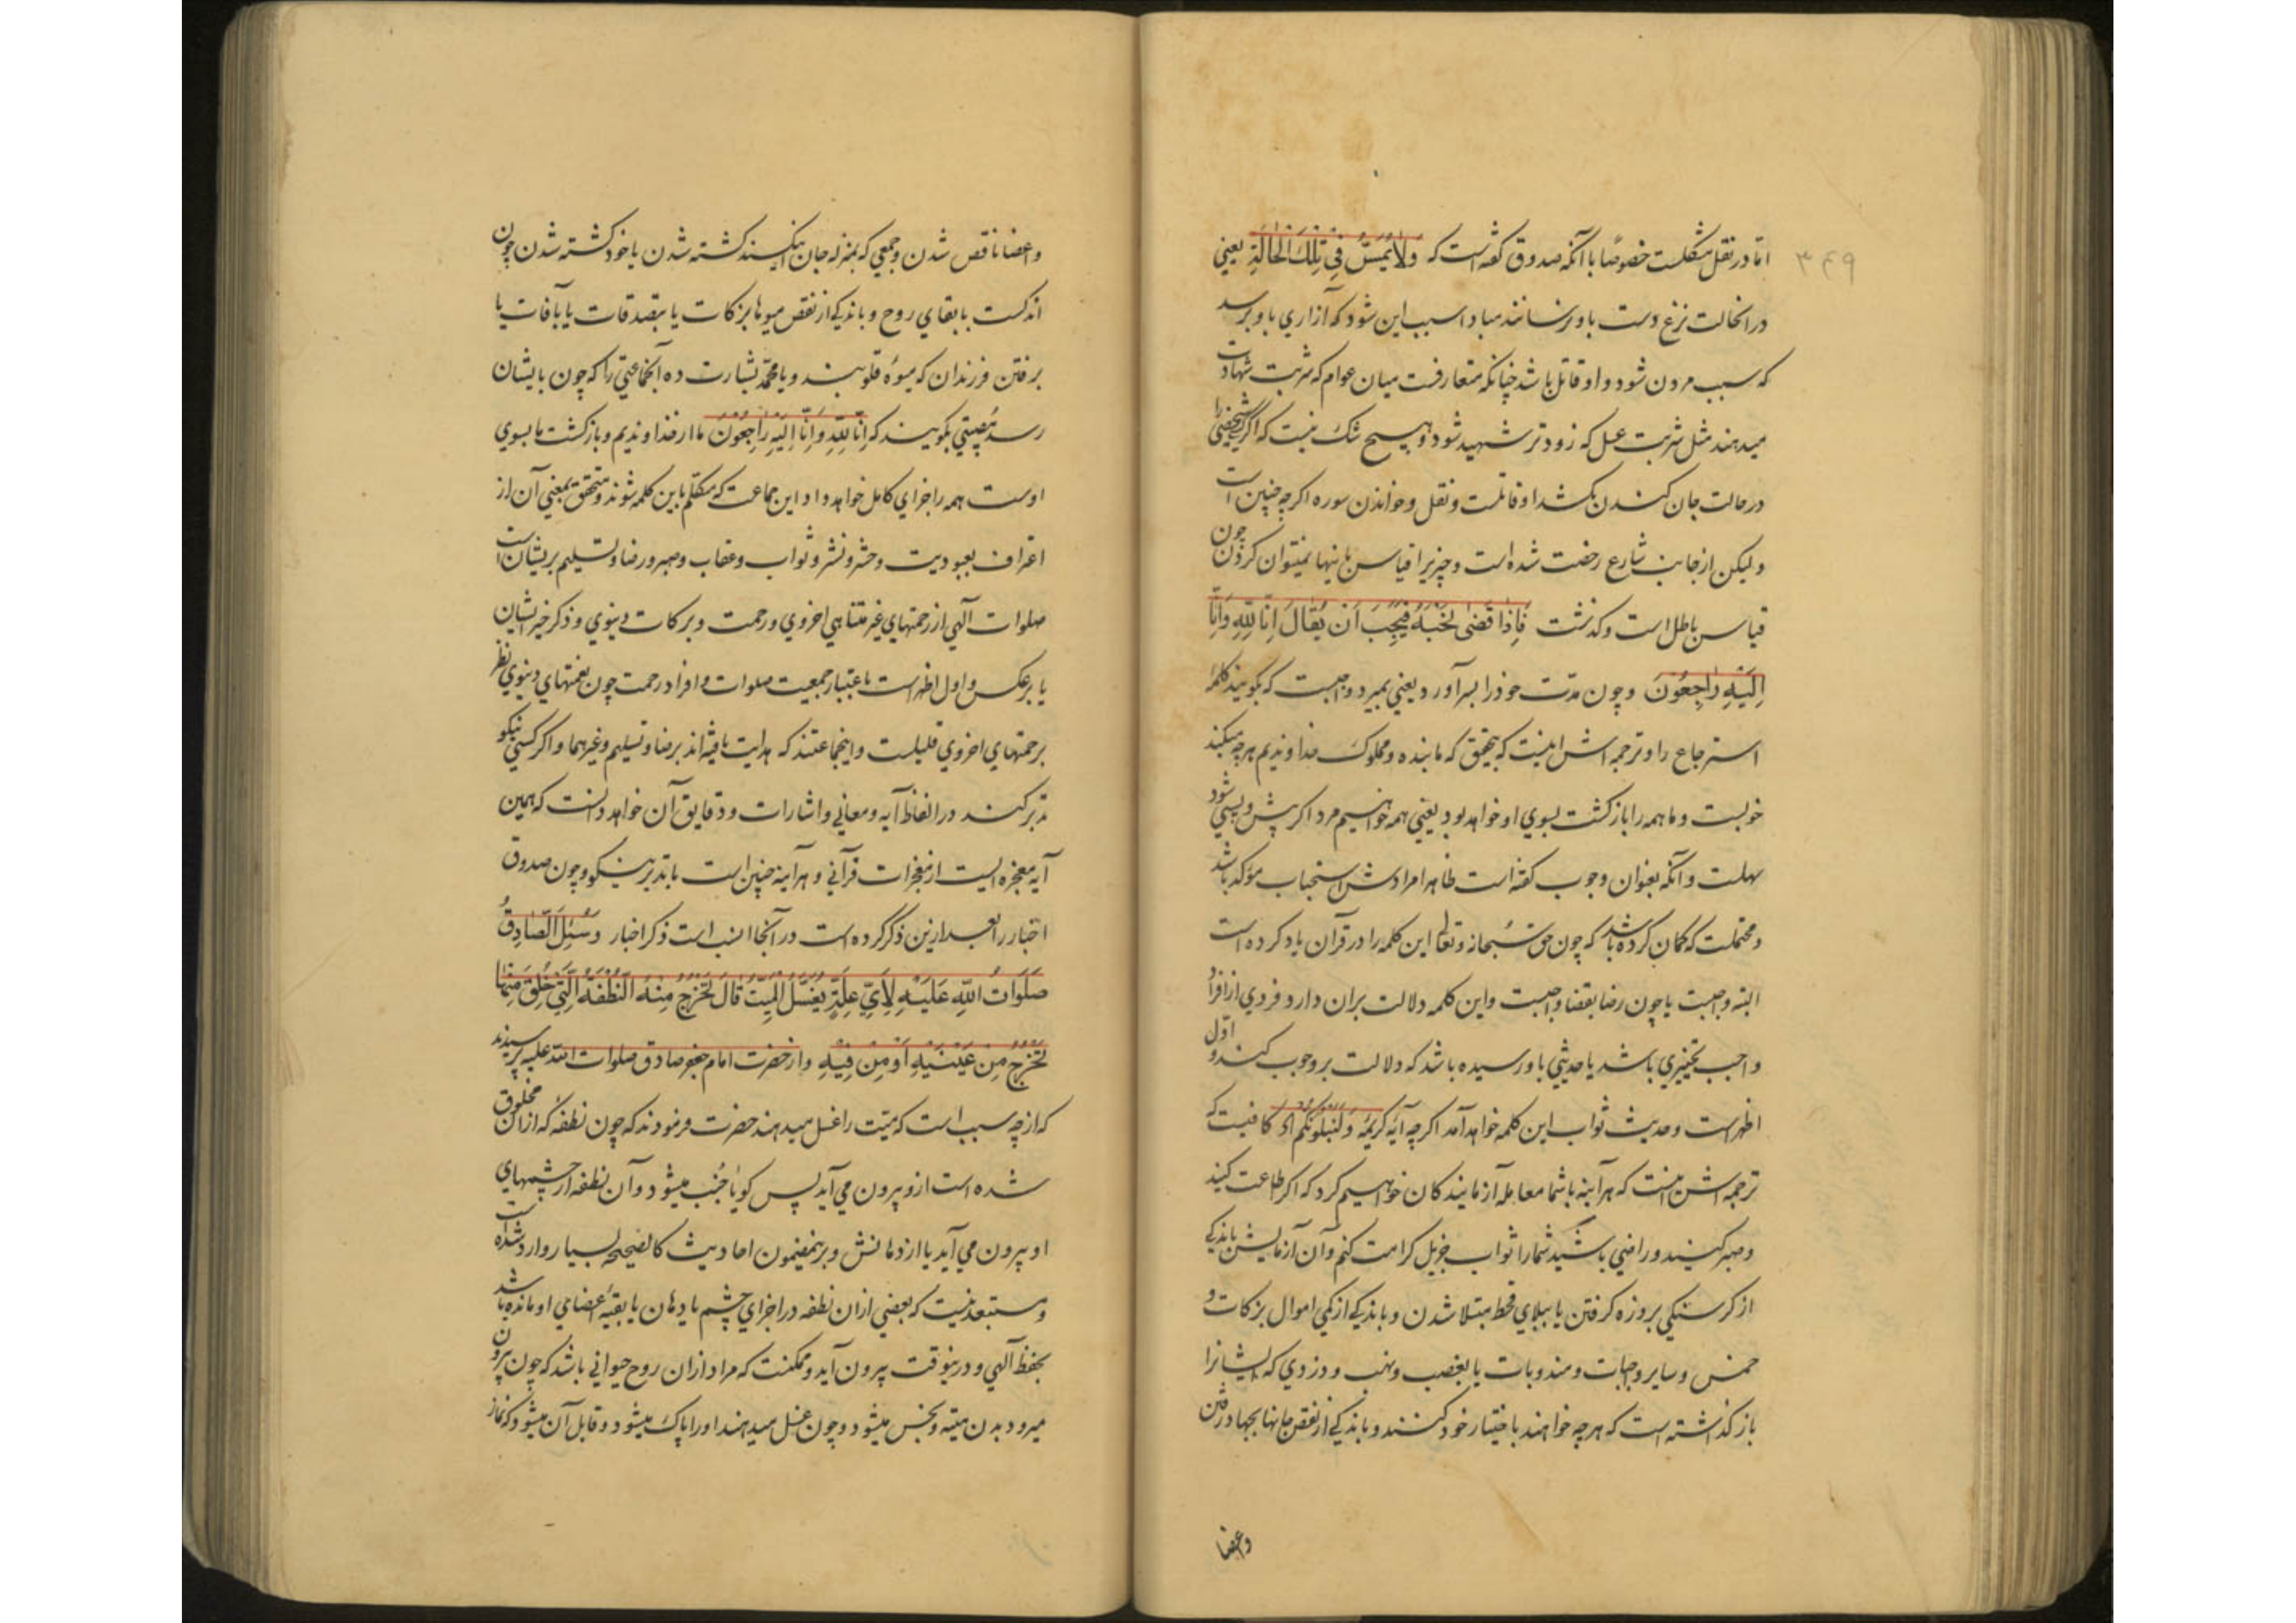 ۳۴۹
اما در نقل مشکلست خصوصا با آنکه صدوق گفته است که وَلا یُمَسُّ فِی تِلْکَ الْحَالَةِ یعنی
در انحالت نزع دست باو نرسانند مبادا سبب این شود که آزاری باو برسد
که سبب مردن شود و او قاتل باشد چنانکه متعارفست میان عوام که شربت شهادت
میدهند مثل شربت عسل که زودتر شهید شود و هیچ شک نیست که اگر شخصی را
در حالت جان کندن بکشد او قاتلست و نقل و خواندن سوره اکرچه چنین است
ولیکن از جانب شارع رخصت شده است و چیزیرا قیاس باینها نمیتوان کردن چون
قیاس باطل است و کذشت فَاِذا قَضىٰ نَحْبَهُ فَیَجِبُ اَنْ یُقالَ اِنَّا لِلّٰهِ وَاِنَّا
اِلَیْهِ رَاجِعُونَ و چون مدت خود را بسر آورد یعنی بمیرد واجبست که بکویند کلمهٔ
استرجاع را و ترجمه اش اینست که بتحقیق که ما بنده و مملوک خداوندیم هرچه میکند
خوبست و ما همه را بازکشت بسوی او خواهد بود یعنی همه خواهیم مرد اکر پیش و پسی شود
سهلست و آنکه بعنوان وجوب کفته است ظاهرا مرادش استحباب مؤکد باشد
و محتملست که کمان کرده باشد که چون حق سبحانه و تعالی این کلمه را در قرآن یاد کرده است
البته واجبست یا چون رضا بقضا واجبست و این کلمه دلالت بران دارد و فردی از افراد
واجب تخییری باشد یا حدیثی باو رسیده باشد که دلالت بر وجوب کند و اول
اظهر است و حدیث ثواب این کلمه خواهد آمد اکرچه آیهٔ کریمهٔ وَلَنَبْلُوَنَّکُمْ کافیست که
ترجمه اش اینست که هرآینه با شما معامله آزمایندکان خواهیم کرد که اکر اطاعت کنید
و صبر کنید و راضی باشید شما را ثواب جزیل کرامت کنم و آن آزمایش باندکی
از کرسنکی بروزه کرفتن یا ببلای قحط مبتلا شدن و باندکی از کمی اموال بزکات و
خمس و سایر واجبات و مندوبات یا بغصب و نهب و دزدی که ایشانرا
باز کذاشته است که هرچه خواهند باختیار خود کنند و باندکی از نقص جانها بجهاد رفتن
واعضا
واعضا ناقص شدن و جمعی که بمنزله جان کشته شدن یا خود کشته شدن چون
اندکست با بقای روح و باندکی از نقص میوها بزکات یا بتصدقات یا بآفات یا
برفتن فرزندان که میوهٔ قلوبند و یا محمد بشارت ده آنجماعتی را که چون بایشان
رسد مصیبتی بکویند که اِنَّا لِلّٰهِ وَاِنَّا اِلَیْهِ رَاجِعُونَ ما از خداوندیم و بازکشت ما بسوی
اوست همه را جزای کامل خواهد داد این جماعت که متکلم باین کلمه شوند و متحقق بمعنی آن از
اعتراف بعبودیت و حشر و نشر و ثواب و عقاب و صبر و رضا و تسلیم بریشان است
صلوات آلهی از رحمتهای غیر متناهی اخروی و رحمت و برکات دنیوی و ذکر خیر ایشان
یا برعکس و اول اظهر است باعتبار جمعیت صلوات و افراد رحمت چون نعمتهای دنیوی نظر
برحمتهای اخروی قلیلست و اینجماعتند که هدایت یافته اند برضا و تسلیم و غیرهما و اکر کسی نیکو
تدبر کند در الفاظ آیه و معانی و اشارات و دقایق آن خواهد دانست که همین
آیه معجزه ایست از معجزات قرآنی و هرآینه چنین است با تدبر نیکو و چون صدوق
اخبار را بعد ازین ذکر کرده است در آنجا انسب است ذکر اخبار وَسُئِلَ الصَّادِقُ
صَلَوَاتُ اللّٰهِ عَلَیْهِ لِاَیِّ عِلَّةٍ یُغَسَّلُ الْمَیِّتُ قَالَ تَخْرُجُ مِنْهُ النُّطْفَةُ الَّتِی خُلِقَ مِنْهَا
تَخْرُجُ مِنْ عَیْنَیْهِ اَوْ مِنْ فِیْهِ و از حضرت امام جعفر صادق صلوات الله علیه پرسیدند
که از چه سبب است که میت را غسل میدهند حضرت فرمودند که چون نطفهٔ که از ان مخلوق
شده است ازو بیرون می آید پس کویا جنب میشود و آن نطفه از چشمهای
او بیرون می آید یا از دهانش و برینمضمون احادیث کالصحیحه بسیار وارد شده است
و مستبعد نیست که بعضی از ان نطفه در اجزای چشم یا دهان یا بقیهٔ اعضای او مانده باشد
بحفظ آلهی و درینوقت بیرون آید و ممکنست که مراد از ان روح حیوانی باشد که چون بیرون
میرود بدن میته و نجس میشود و چون غسل میدهند او را پاک میشود و قابل آن میشود که نماز